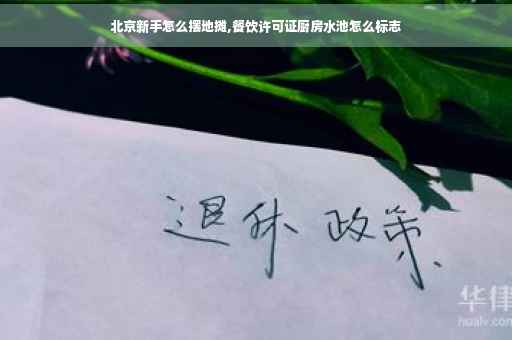 北京新手怎么摆地摊,餐饮许可证厨房水池怎么标志
退休 政策
华律
hualv.com